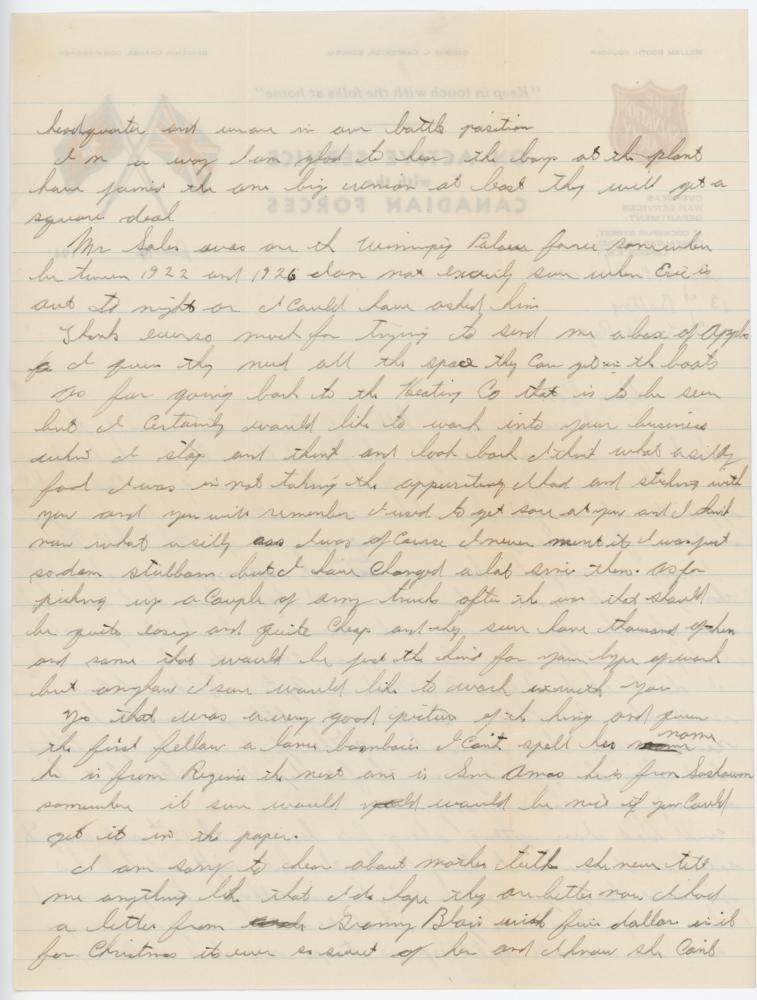 headquarter and we are in our battle position
In a way I am glad to hear the boys at the plant
have joined the one big union at least they will get a
square deal
Mr Sales was on the Winnipeg Police force somewhere
between 1922 and 1926 I am not exactly sure when Eric is
out to night or I could have asked him
Thank ever so much for trying to send me a box of Apples
I guess they need all the space they can get in the boats
As far going back to the Heating Co that is to be seen
but I certainly would like to work into your business
when I stop and think and look back I think what a silly
fool I was in not taking the appurtinity I had and sticking with
you and you will remember I used to get sore at you and I think
now what a silly ass I was of course I never ment it I was just
so darn stubborn but I have changed a lot since then. As for
picking up a couple of army trucks after the war that should
be quite easy and quite cheap and they sure have thousand of them
and some that would be just the kind for your type of work
but anyhow I sure would like to work with you
Yes that was a very good picture of the king and queen
the first fellow a lance bombadier I can't spell his name
he is from Regina the next one is Gnr Amos he is from Saskatoon
somewhere it sure would would be nice if you could
get it in the paper.
I am sorry to hear about mother teeth she never tell
me anything like that I do hope they are better now I had
a letter from Granny Blair with five dollar in it
for Christmas its ever so sweet of her and I know she can't
"Keep in touch with the folks at home"
ON ACTIVE SERVICE
with the
CANADIAN FORCES
WILLIAM BOOTH, FOUNDER
GEORGE L. CARPENTER, GENERAL
OVERSEAS
WAR SERVICES
DEPARTMENT: